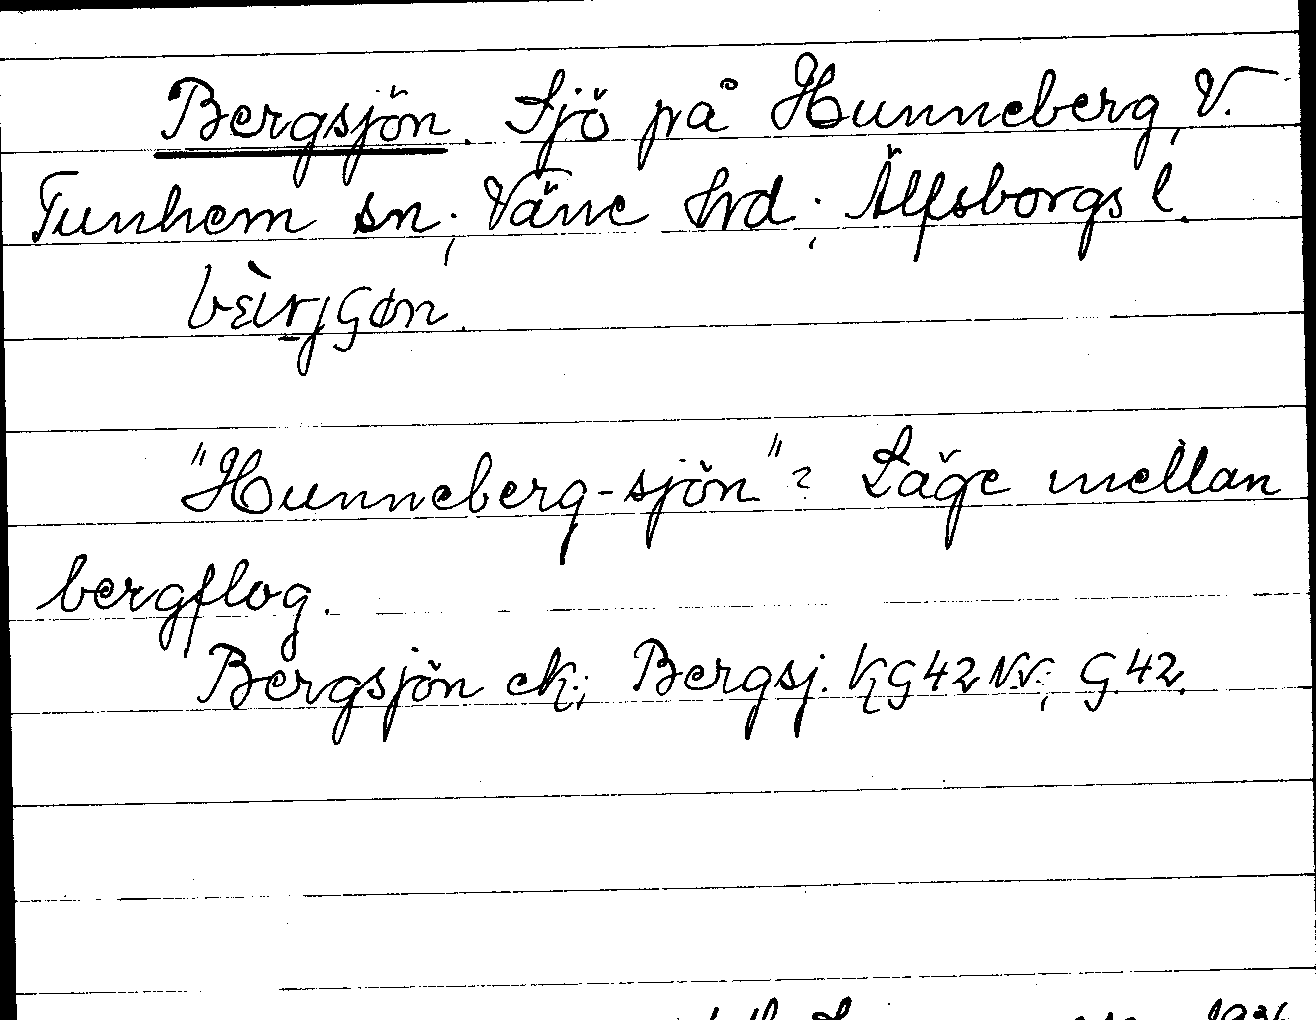 Bergsjön. Sjö på Hunneberg, V.
Tunhem sn; Väne hrd; Älfsborgs l.
bèrjsøn.
"Hunneberg-sjön"? Läge mellan
bergflog.
Bergsjön ek; Bergsj. KG42NV; G.42.
1936